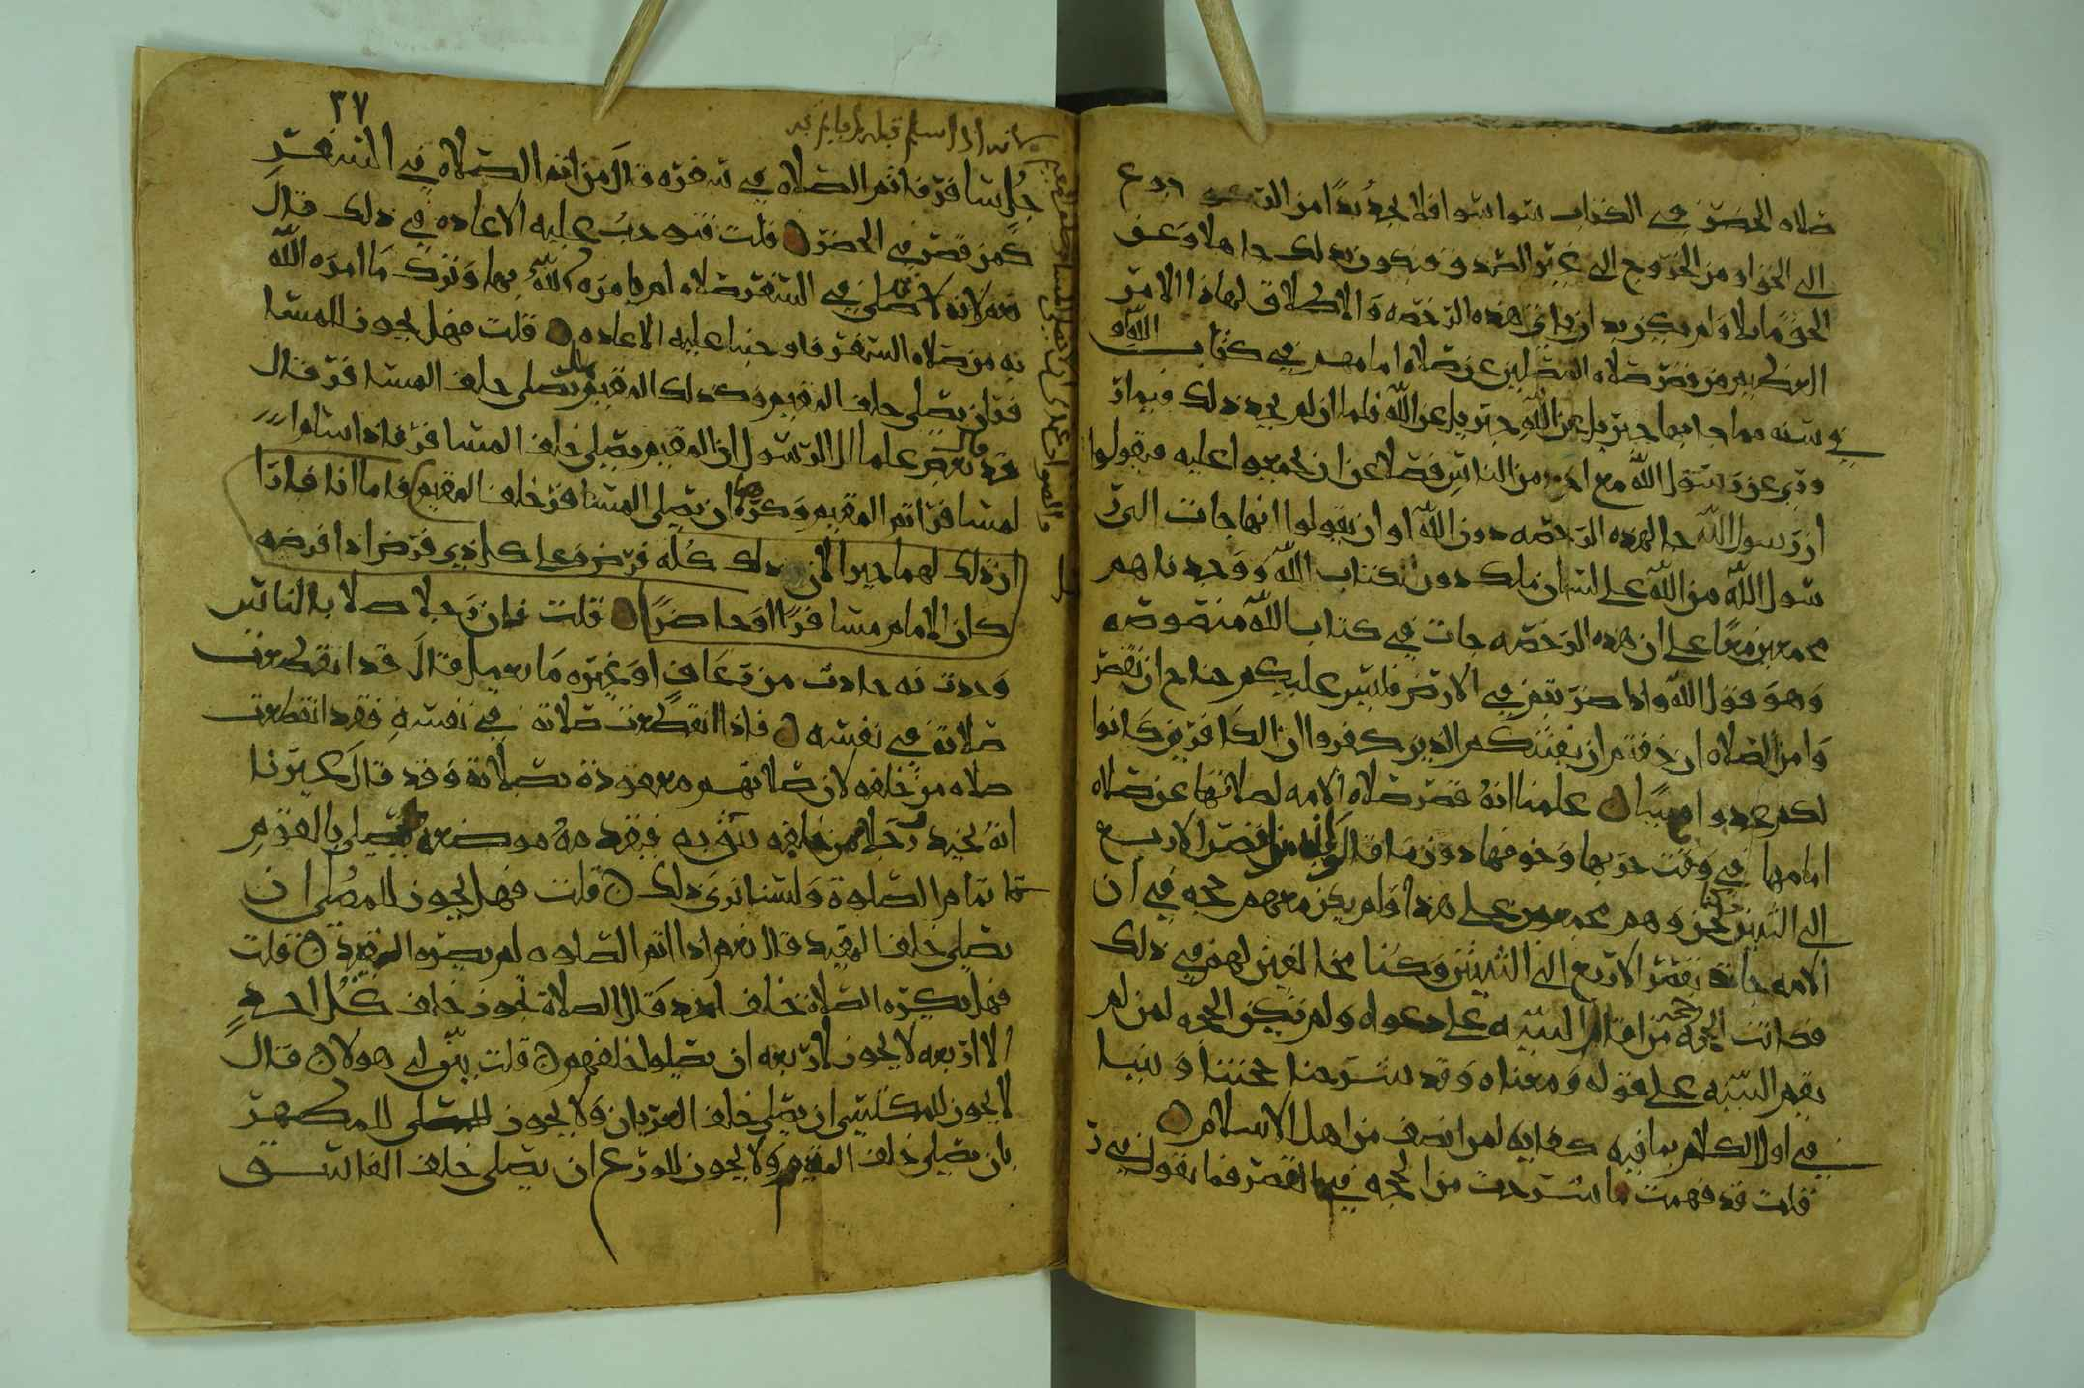 صلاه الحضر في الكتاب سوا سوا فلا يجد بدا من
الى الخزاو من الخروج الى غير الصدق فيكون بذلك جاهلا وعن
الحق مايلا ولم يكن يدان في هذه الرخصه والاطلاق لهاذا الامر
العظيم من قصر صلاه المصلين عن صلاه امامهم في كتاب الله او
في سنه مما جا بها جبريل عن الله جبريل عن الله فلما ان لم يجد ذلك فيما
روي عن رسول الله مع احد من الناس فضلا عن ان يجمعوا عليه فيقولوا
ان رسول الله جا بهذه الرخصه دون الله او ان يقولوا انها جات الى ر
سول الله من الله على لسان ملك دون كتاب الله ووجدناهم
مجمعين معا على ان هذه الرخصه جات في كتاب الله منصوصه
وهو قول الله واذا ضربتم في الارض فليس عليكم جناح ان تقصر
وا من الصلاه ان خفتم ان يفتنكم الذين كفروا ان الكافرين كانوا
لكم عدوا مبينا علمنا انه قصر صلاه الامه لصلاتها عن صلاه
امامها في وقت حربها وخوفها دون ما قال من قصر الاربع
الى اثنتين نحن وهم مجمعون على هذا ولم يكن معهم حجه في ان
الامه جات بقصر الاربع الى اثنتين وكنا مخالفين لهم في ذلك
فكانت الحجه حجه من اقام البينه على دعواه ولم تكن الحجه لمن لم
يقم البينه على قوله ومعناه وقد شرحنا حجتنا وبينا
في اول الكلام بما فيه كفايه لمن انصف من اهل الاسلام
قلت قد فهمت ما شرحت من الحجه فيما تقصر فما تقول في ر
٣٧
جل سافر فاتم الصلاه في سفره قال من اتم الصلاه في السفر
كمن قصر في الحضر قلت فتوجب عليه الاعاده في ذلك قال
نعم لانه صلى في السفر صلاه لم يامره الله بها وترك ما امره الله
به من صلاه السفر فاوجبنا عليه الاعاده قلت فهل يجوز للمسا
فر ان يصلي خلف المقيم وكذلك المقيم يصلي خلف المسافر قال
قد قال بعض علما ال الرسول ان المقيم يصلي خلف المسافر فاذا سلم ا
لمسافر اتم المقيم وكره ان يصلي المسافر خلف المقيم فاما انا فارا
ان ذلك لهما جيزا لان ذلك كله فرض وعلى كل ذي فرض ادا فرضه
كان الامام مسافرا او حاضرا قلت فان رجلا صلا بالناس
وحدث به حادث من رعاف او غيره ما يعمل قال قد انقطعت
صلاته في نفسه فاذا انقطعت صلاته في نفسه فقد انقطعت
صلاه من خلفه لان صلاتهم معقوده بصلاته وقد قال غيرنا
انه يجيد رجلا من خلفه يثق به فيقدمه موضعه يصلي بالقوم
تمام الصلوه ولسنا نرى ذلك قلت فهل يجوز للمصلي ان
يصلي خلف المقيد قال نعم اذا اتم الصلوه لم يضره القيد قلت
فهل يكره الصلاه خلف احد قال الصلاه تجوز خلف كل احد
الا اربعه لا يجوز لاربعه ان يصلوا خلفهم قلت بين لي هولا قال
لا يجوز للمكتسي ان يصلي خلف العريان ولا يجوز للمتطهر
بان يصلي خلف المتيمم ولا يجوز للورع ان يصلي خلف الفاسق